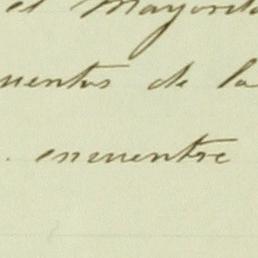 el Mayord
uentas de la
encuentre